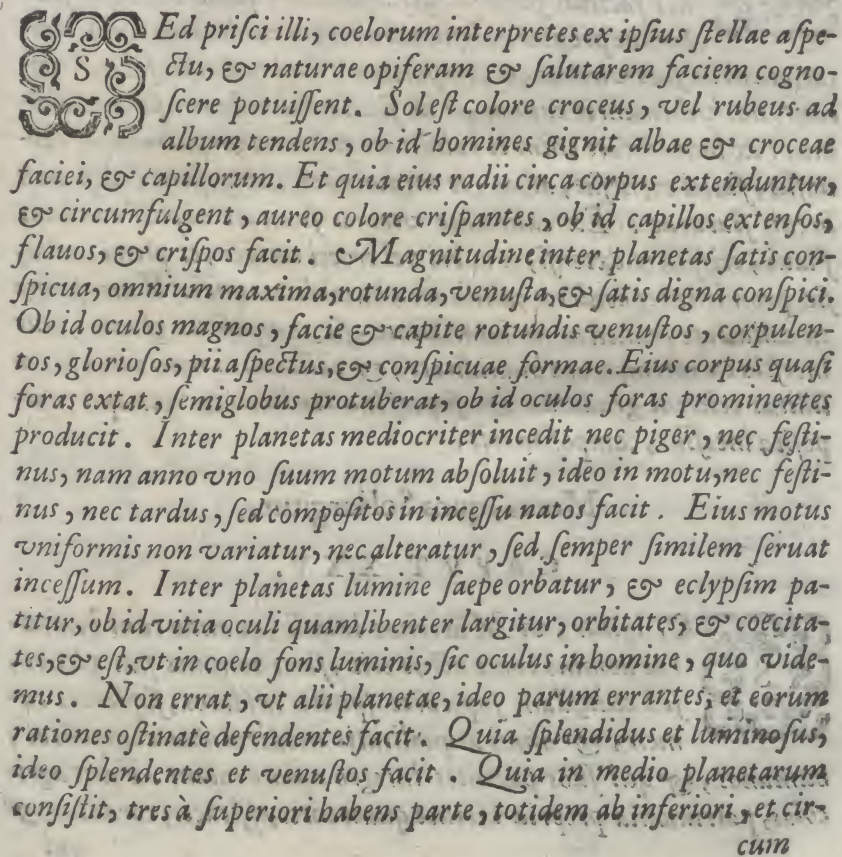 SEd priſci illi, coelorum interpretes ex ipſius ſtellae aſpe-
ctu, & naturae opiferam & ſalutarem faciem cogno-
ſcere potuiſſent. Sol eſt colore croceus, vel rubeus ad
album tendens, ob id homines gignit albae & croceae
faciei, & capillorum. Et quia eius radii circa corpus extenduntur,
& circumfulgent, aureo colore criſpantes, ob id capillos extenſos,
flauos, & criſpos facit. Magnitudine inter planetas ſatis con-
ſpicua, omnium maxima, rotunda, venuſta, & ſatis digna conſpici.
Ob id oculos magnos, facie & capite rotundis venuſtos, corpulen-
tos, glorioſos, pii aſpectus, & conſpicuae formae. Eius corpus quaſi
foras extat, ſemiglobus protuberat, ob id oculos foras prominentes
producit. Inter planetas mediocriter incedit nec piger, nec feſti-
nus, nam anno vno ſuum motum abſoluit, ideo in motu, nec feſti-
nus, nec tardus, ſed compoſitos in inceſſu natos facit. Eius motus
vniformis non variatur, nec alteratur, ſed ſemper ſimilem ſeruat
inceſſum. Inter planetas lumine ſaepe orbatur, & eclypſim pa-
titur, ob id vitia oculi quamlibenter largitur, orbitates, & coecita-
tes, & eſt, vt in coelo fons luminis, ſic oculus in homine, quo vide-
mus. Non errat, vt alii planetae, ideo parum errantes, et eorum
rationes oſtinatè defendentes facit. Quia ſplendidus et luminoſus,
ideo ſplendentes et venuſtos facit. Quia in medio planetarum
conſiſtit, tres à ſuperiori habens parte, totidem ab inferiori, et cir-
cum